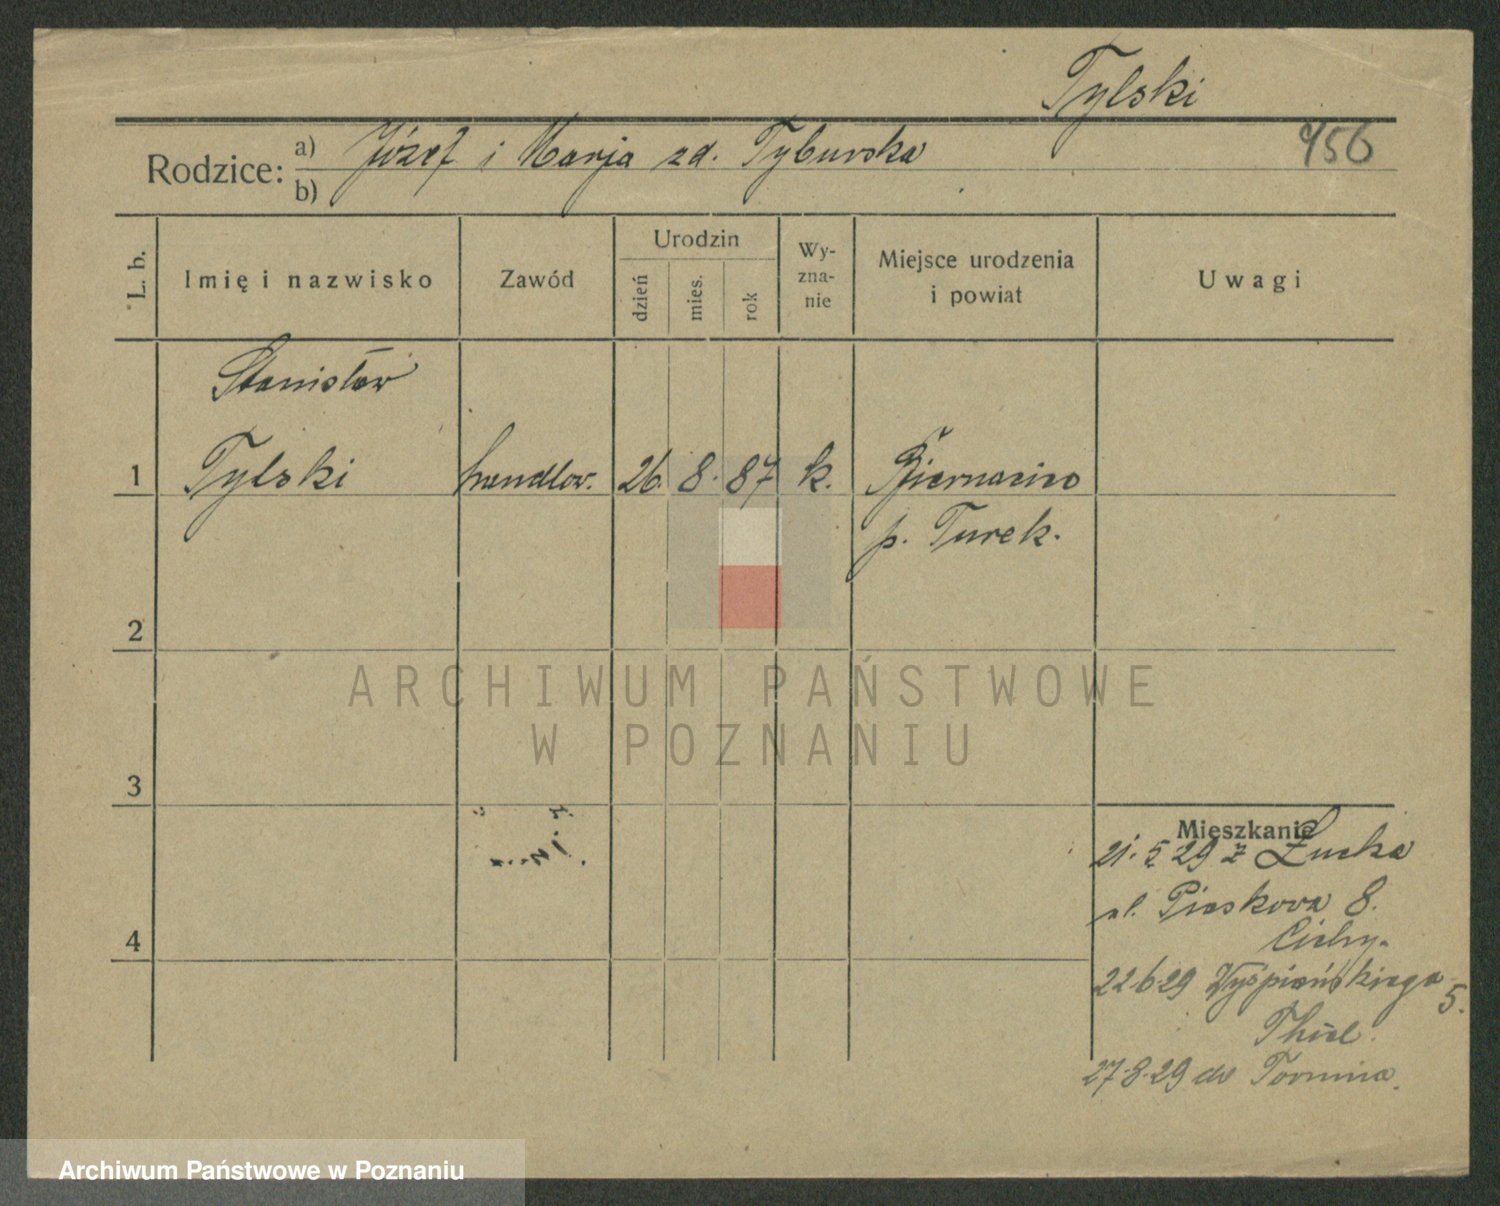 Tylski
Rodzice: a) Józef i Marja zd. Tyburska
956
b)
L. b.
Imię i nazwisko
Zawód
Urodzin
dzień
mies.
rok
Wy-
zna-
nie
Miejsce urodzenia
i powiat
Uwagi
Stanisław
1 Tylski handlow. 26. 8. 87 k. Biernacice
p. Turek.
2
3
4
Mieszkanie
21. 5 29 z Łucka
ul. Piaskowa 8.
Cichy.
22.6.29 Wyspiańskiego 5.
Thiel.
27.8.29 do Torunia.
ARCHIWUM PAŃSTWOWE
W POZNANIU
Archiwum Państwowe w Poznaniu